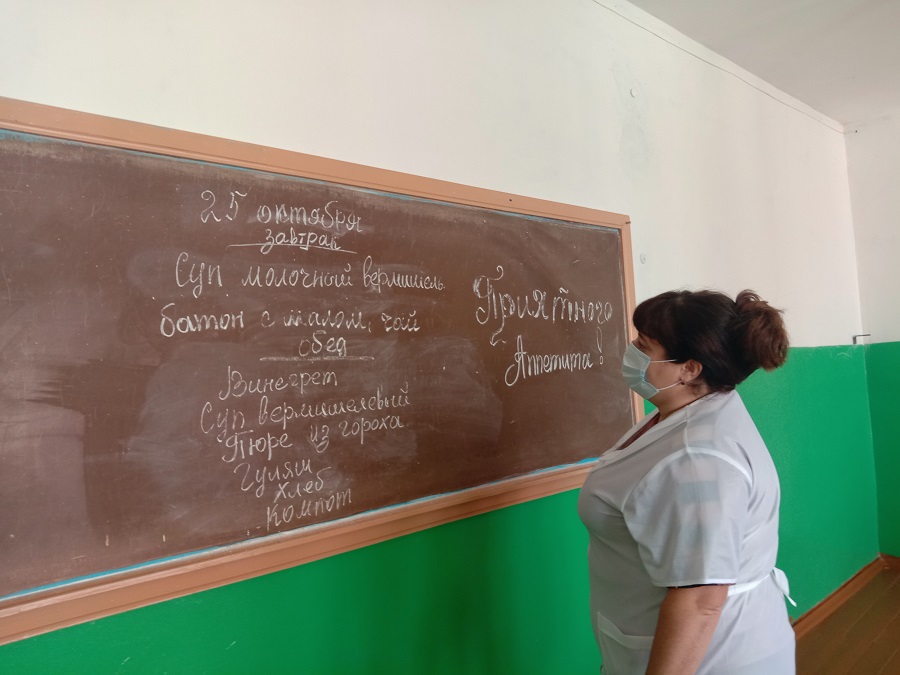 25 октября
завтрак
Суп молочный вермишель
батон с малом, чай
обед
Винегрет
Суп вермишелевый
Пюре из гороха
Гуляш
Хлеб
Компот
Приятного
Аппетита!